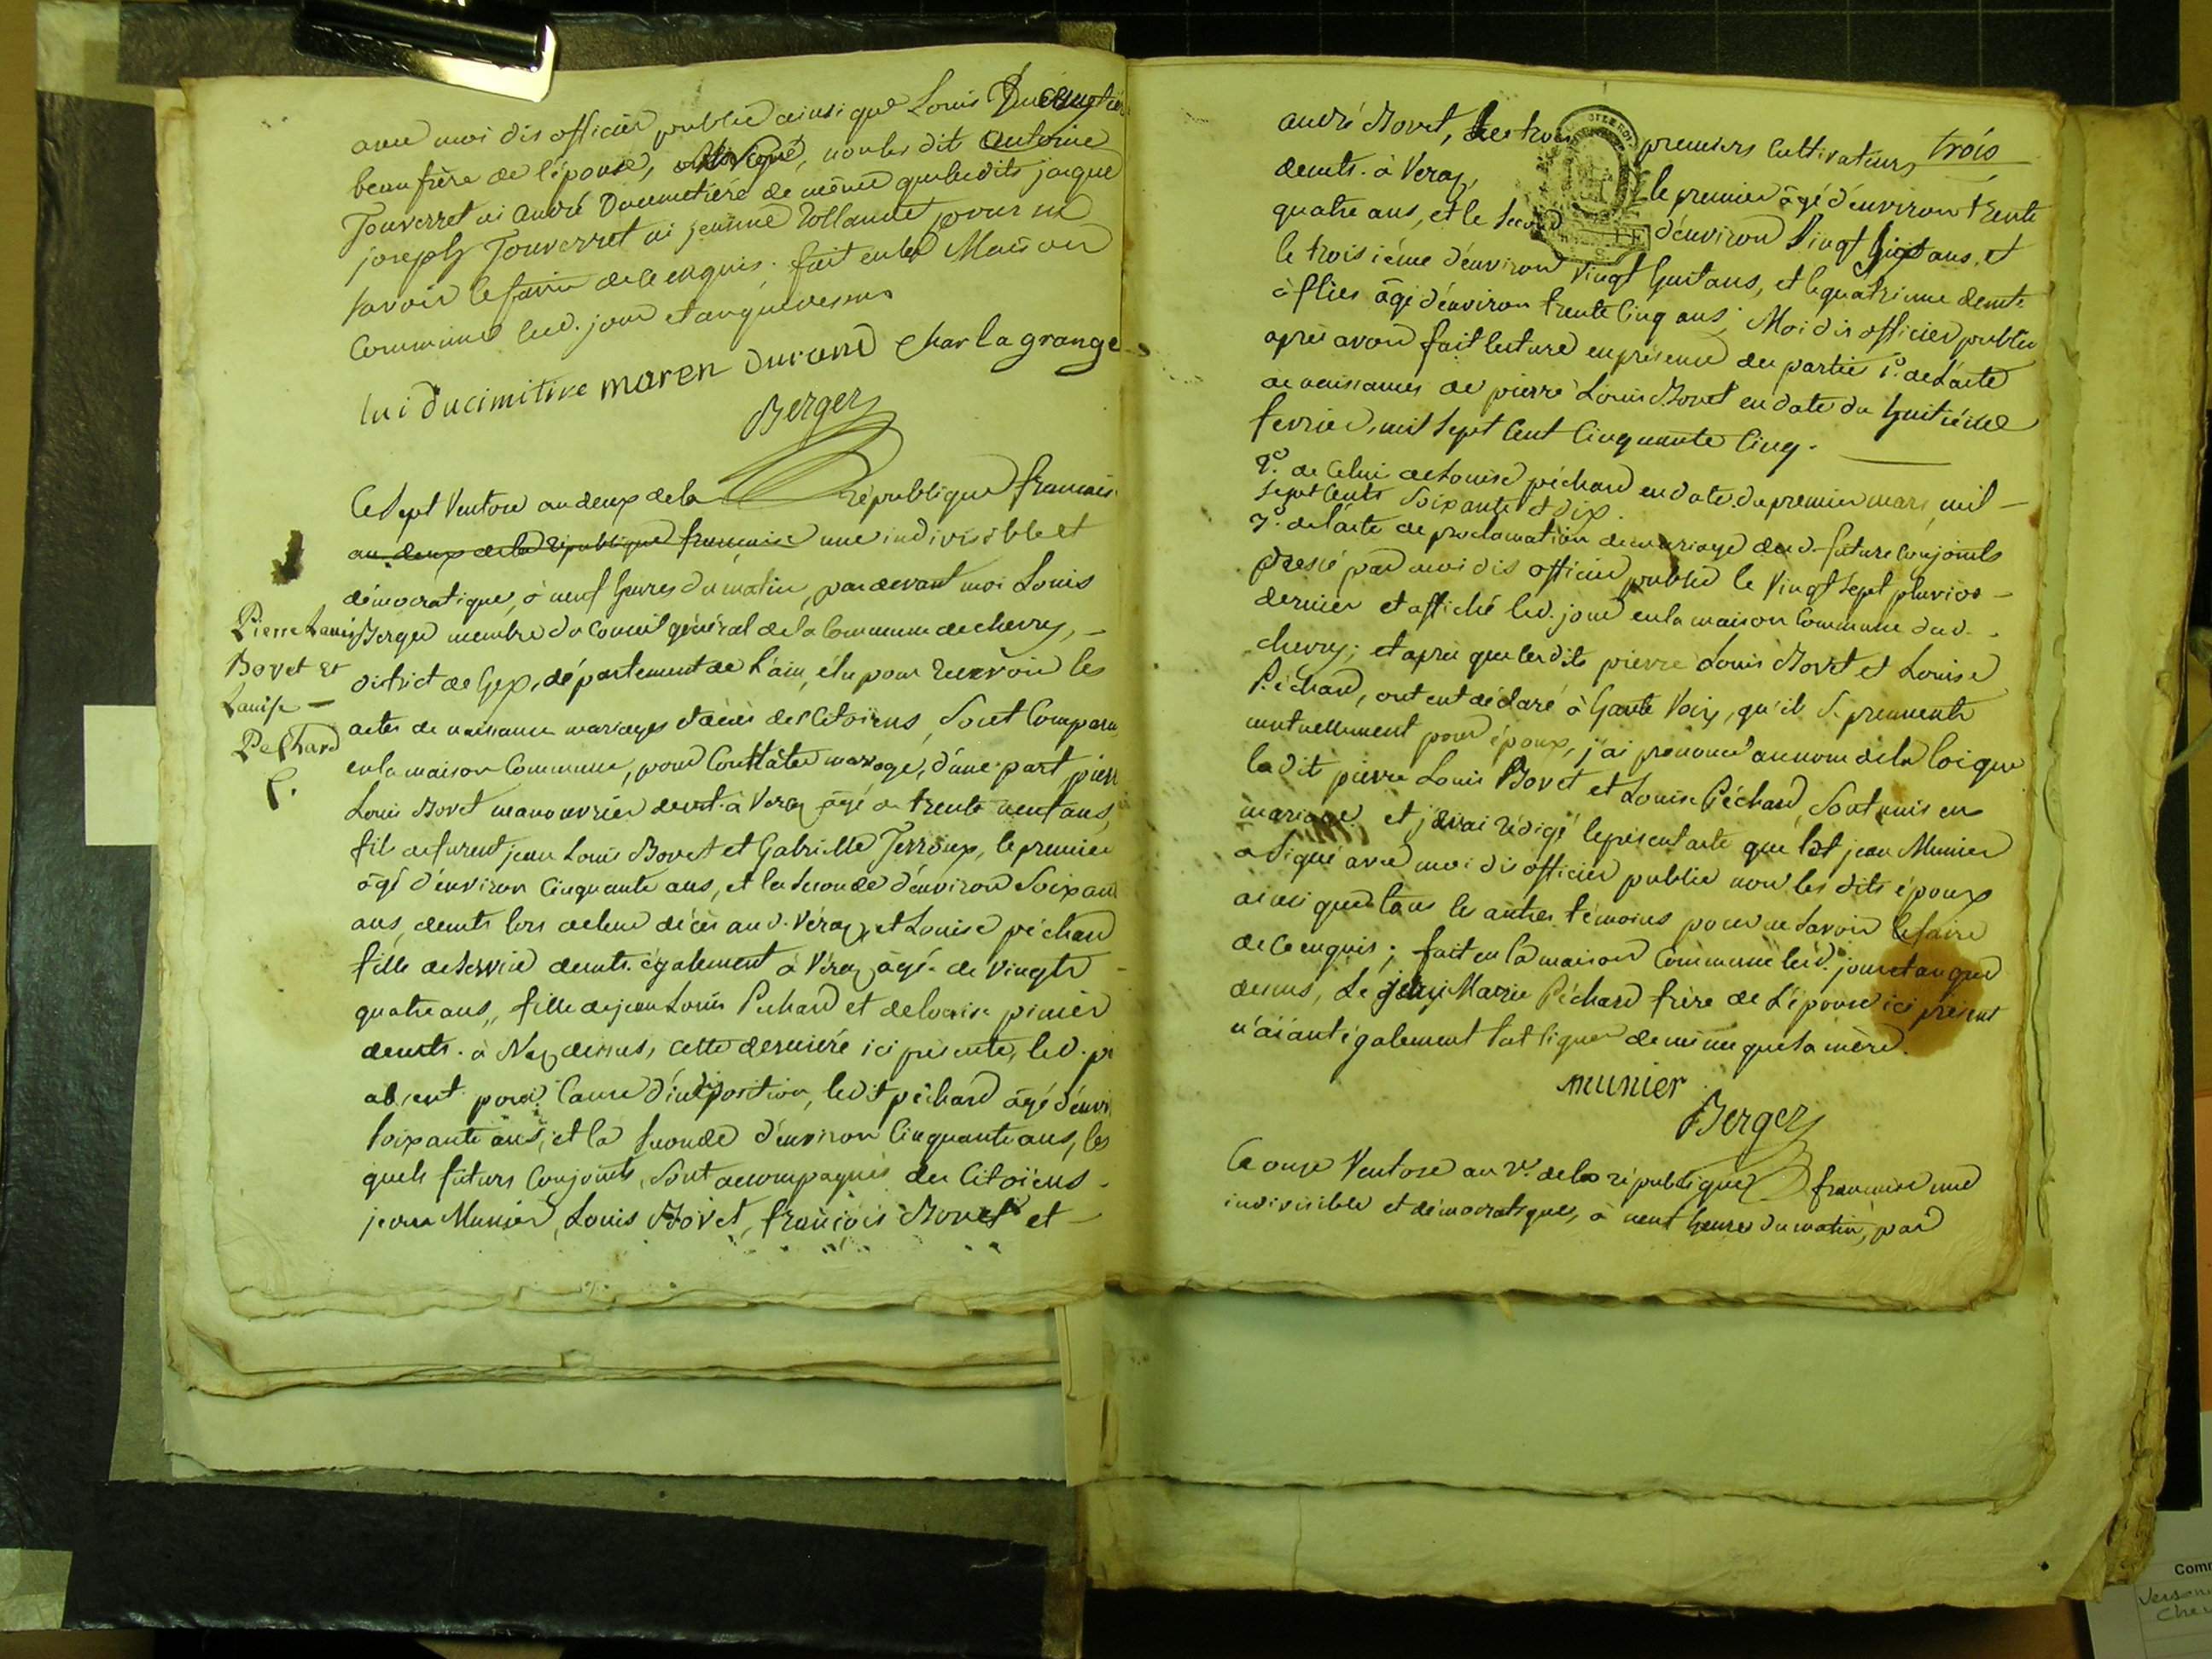 avec moi dis officier public ainsi que Louis
beau frère de l'épouse, non les dits Antoine
Jouverret ni André Ducimetière de même que les dits jaque
joseph Jouverret ni jeanne Rolland pour ne
savoir le faire de ce enquis. fait en la Maison
Commune led. jour et an que dessus
lui ducimitire maren durand char la grange
Berger
Ce Sept Ventose an deux de la république francaise
an deux de la république francaise une indivisible et
démocratique, à neuf heures du matin, par devant moi Louis
Berger membre du Conseil général de la Commune de chevry, —
district de Gex, département de L'ain, élu pour recevoir les
actes de naissance mariages et décès des Citoïens, Sont Comparu
en la maison Commune, pour Contracter mariage, d'une part pierr
Louis Bovet manouvrier demt. à Veraz âgé de trente neuf ans,
fils de furent jean Louis Bovet et Gabrielle Jerroux, le premier
âgé d'environ Cinquante ans, et la Seconde d'environ Soixan
ans, demts lors de leur décès aud. Véraz, et Louise péchard
fille de Service demte. également à Véraz âgée de vingt
quatre ans, fille de jean Louis Péchard et de Louise pinier
demts. à Naz dessus, cette dernière ici présente, led. pé
absent pour Cause d'indisposition, ledit péchard âgé d'envi
Soixante ans, et la Seconde d'environ Cinquante ans, les
quels futurs Conjoints, Sont accompagnés des Citoïens -
jean Munier, Louis Bovet, françois Bovet et —
Pierre Louis
Bovet et
Louise —
Pechard
C.
trois
andré Bovet, les trois premiers Cultivateurs
demts. à Veraz, le premier âgé d'environ trente
quatre ans, et le Second d'environ Vingt huit ans, et
le troisième d'environ vingt huit ans, et le quatrième demt.
à flies âgé d'environ trente Cinq ans; Moi dis officier public
après avoir fait lecture en présence des parties 1°. de L'acte
de naissances de pierre Louis Bovet en date du huitième
fevrier, mil Sept Cent Cinquante Cinq. —
2°. de Celui de Louise péchard en date du premier mars, mil —
Sept Cents Soixante et dix.
3°. de l'acte de proclamation de mariage desd. future Conjoints
dressé par moi dis officier public le Vingt Sept pluviose —
dernier et affiché led. jour en la maison Commune dud. -
chevry; et après que lesdits pierre Louis Bovet et Louise
Péchard, ont ent déclaré à haute Voix, qu'il Se prennent
mutuellement pour époux, j'ai prononcé au nom de la loi que
lesdits pierre Louis Bovet et Louise Péchard, Sont unis en
mariage, et j'ai rédigé le présent acte que led. jean Munier
a signé avec moi dis officier public non les dits époux
ainsi que tous les autres témoins pour ne Savoir le faire
de Ce enquis; fait en la maison Commune led. jour et an que
dessus, Le Marie Péchard frère de L'épouse ici présent
n'aïant également Sut signer de même que Sa mère.
munier
Berger
Ce onze Ventose an 2e. de la république francaise une
indivisible et démocratique, à neuf heures du matin, par